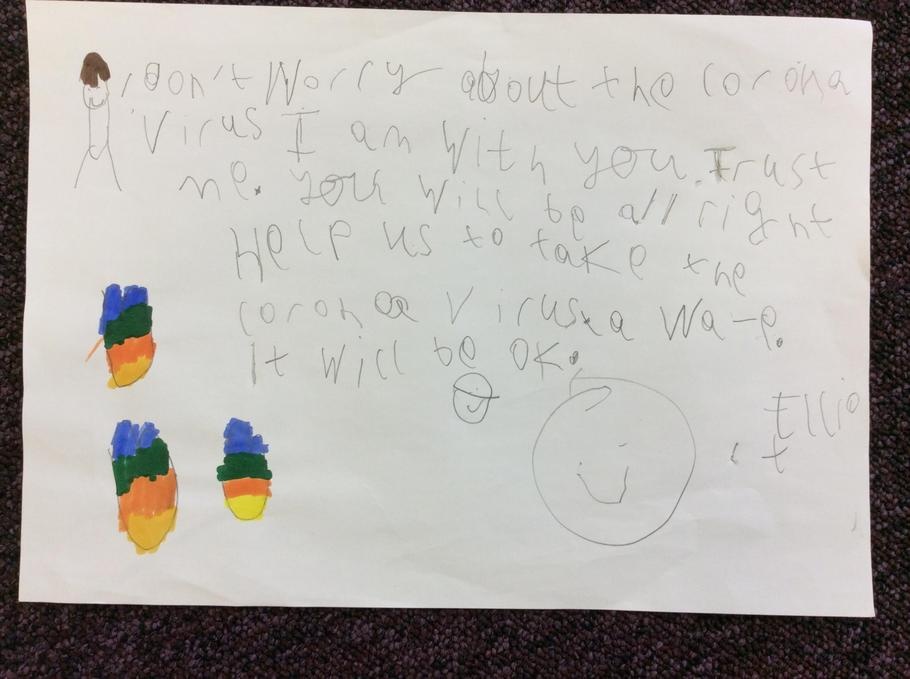 Don't Worry about the corona
Virus I am With you. Trust
me. you will be all right
Help us to take the
corona Virus.a Wa-e.
It will be OK.
Ellio
t